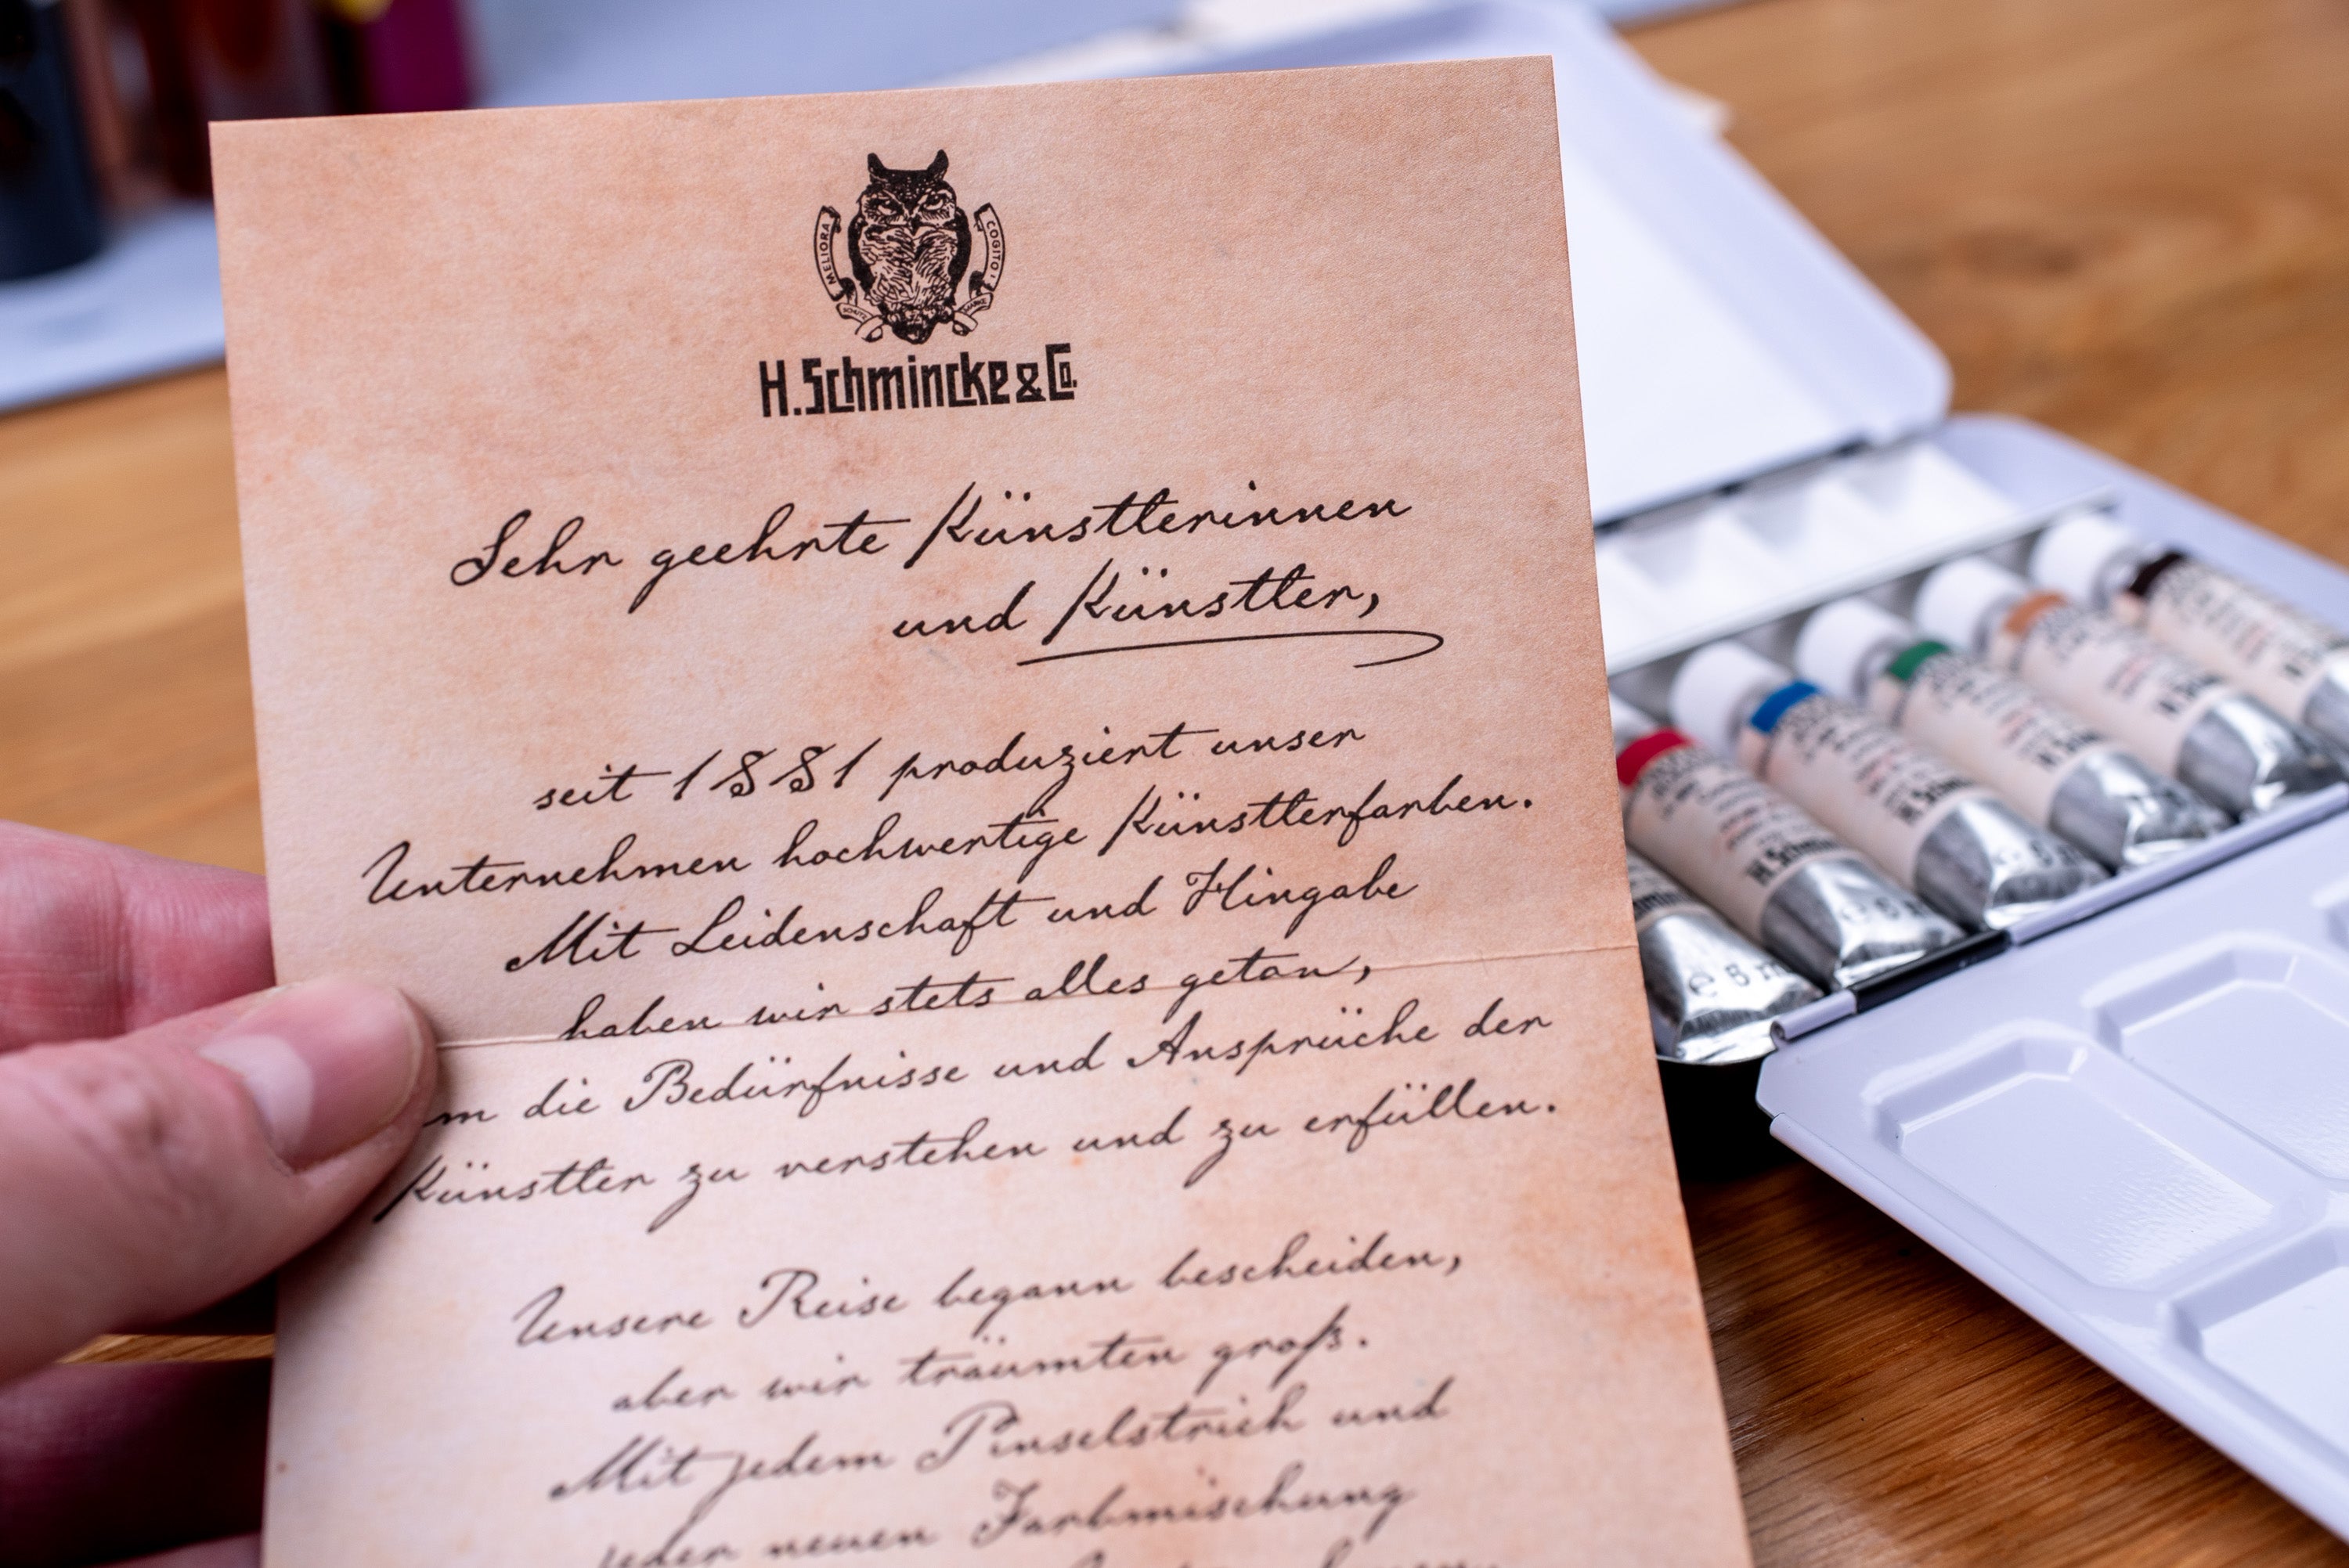 MELIORA COGITO
H. Schmincke & Co.
Sehr geehrte Künstlerinnen
und Künstler,
seit 1881 produziert unser
Unternehmen hochwertige Künstlerfarben.
Mit Leidenschaft und Hingabe
haben wir stets alles getan,
die Bedürfnisse und Ansprüche der
Künstler zu verstehen und zu erfüllen.
Unsere Reise begann bescheiden,
aber wir träumten groß.
Mit jedem Pinselstrich und
jeder neuen Farbmischung
H. Schmincke